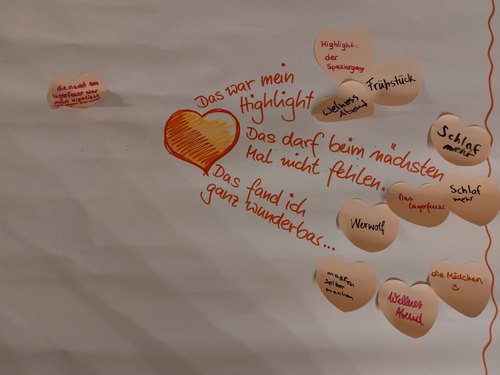 die nacht am
lagerfeuer war
mein highlight
Das war mein
Highlight
Das darf beim nächsten
Mal nicht fehlen...
Das fand ich
ganz wunderbar...
Highlight:
der
Spaziergang
Frühstück
Welness
Abend
Schlaf
mehr
Das Lagerfeuer
Schlaf
mehr
Werwolf
masken
selber
machen
Wellnes
Abend
die Mädchen